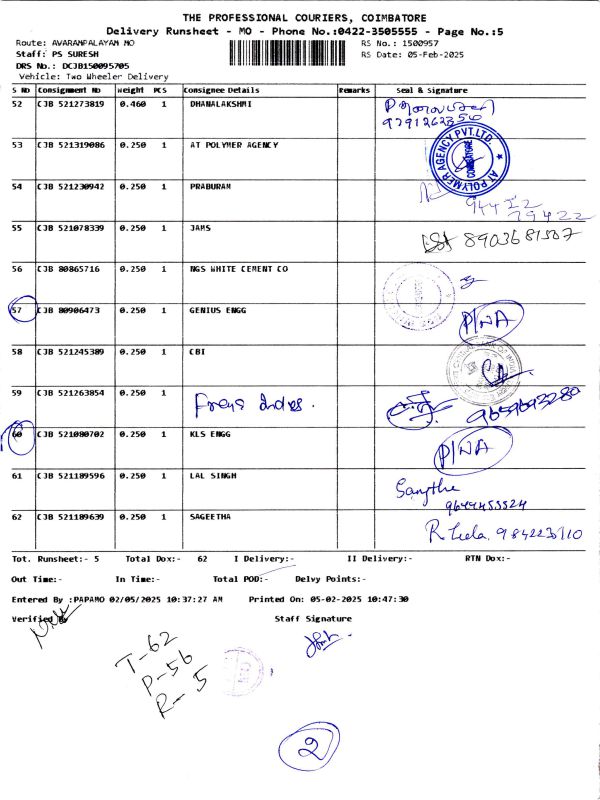 THE PROFESSIONAL COURIERS, COIMBATORE
Delivery Runsheet - MO - Phone No.:0422-3505555 - Page No.:5
Route: AVARAMPALAYAM MO RS No.: 1500957
Staff: PS SURESH RS Date: 05-Feb-2025
DRS No.: DCJB150095705
Vehicle: Two Wheeler Delivery
S No Consignment No Weight PCS Consignee Details Remarks Seal & Signature
52 CJB 521273819 0.460 1 DHANALAKSHMI
9791262356
53 CJB 521319086 0.250 1 AT POLYMER AGENCY AT POLYMER AGENCY PVT.LTD. COIMBATORE
54 CJB 521230942 0.250 1 PRABURAM
944 22
79422
55 CJB 521078339 0.250 1 JAMS 8903681507
56 CJB 80865716 0.250 1 NGS WHITE CEMENT CO
57 CJB 80906473 0.250 1 GENIUS ENGG P/NA
58 CJB 521245389 0.250 1 CBI
59 CJB 521263854 0.250 1 9659693280
60 CJB 521080702 0.250 1 KLS ENGG P/NA
61 CJB 521189596 0.250 1 LAL SINGH
9644455524
62 CJB 521189639 0.250 1 SAGEETHA R Leela. 9842237110
Tot. Runsheet:- 5 Total Dox:- 62 I Delivery:- II Delivery:- RTN Dox:-
Out Time:- In Time:- Total POD:- Delvy Points:-
Entered By :PAPAMO 02/05/2025 10:37:27 AM Printed On: 05-02-2025 10:47:30
Verified By Staff Signature
T-62
P-56
R-5
2